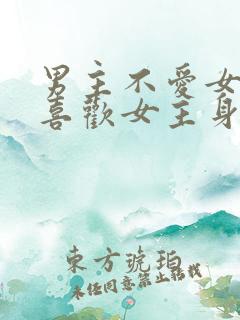 男主不愛女
喜歡女主身
東方琥珀
未经同意禁止转载